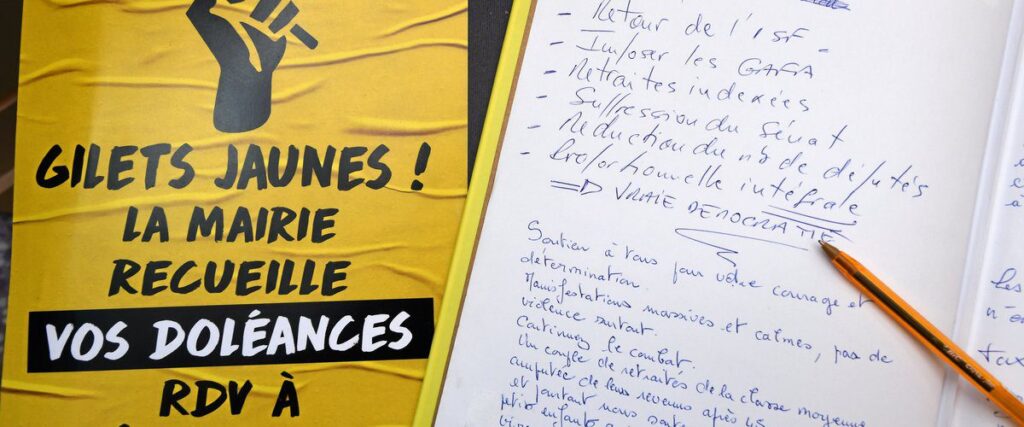 GILETS JAUNES !
LA MAIRIE
RECUEILLE
VOS DOLÉANCES
RDV À
- Retour de l'ISF -
- Imposer les GAFA
- Retraites indexées
- Suppression du Sénat
- Réduction du nb de députés
- Proportionnelle intégrale
=> VRAIE DEMOCRATIE
Soutien à vous pour votre courage et
détermination.
Manifestations massives et calmes, pas de
violence surtout.
Continuez le combat.
Un couple de retraités de la classe moyenne
amputée de leurs revenus après 45
et pourtant nous
petits enfants